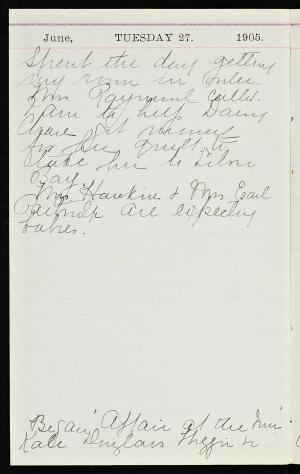 June, TUESDAY 27. 1905.
Spent the day getting
my room in order.
Mrs Raymond called.
I am to help Daisy
for her quilt to
take her to
Bay.
Mrs Hawkins & Mrs Earl
are expecting
babies.
Began "Affair at the Inn"
Kate Douglas Wiggin